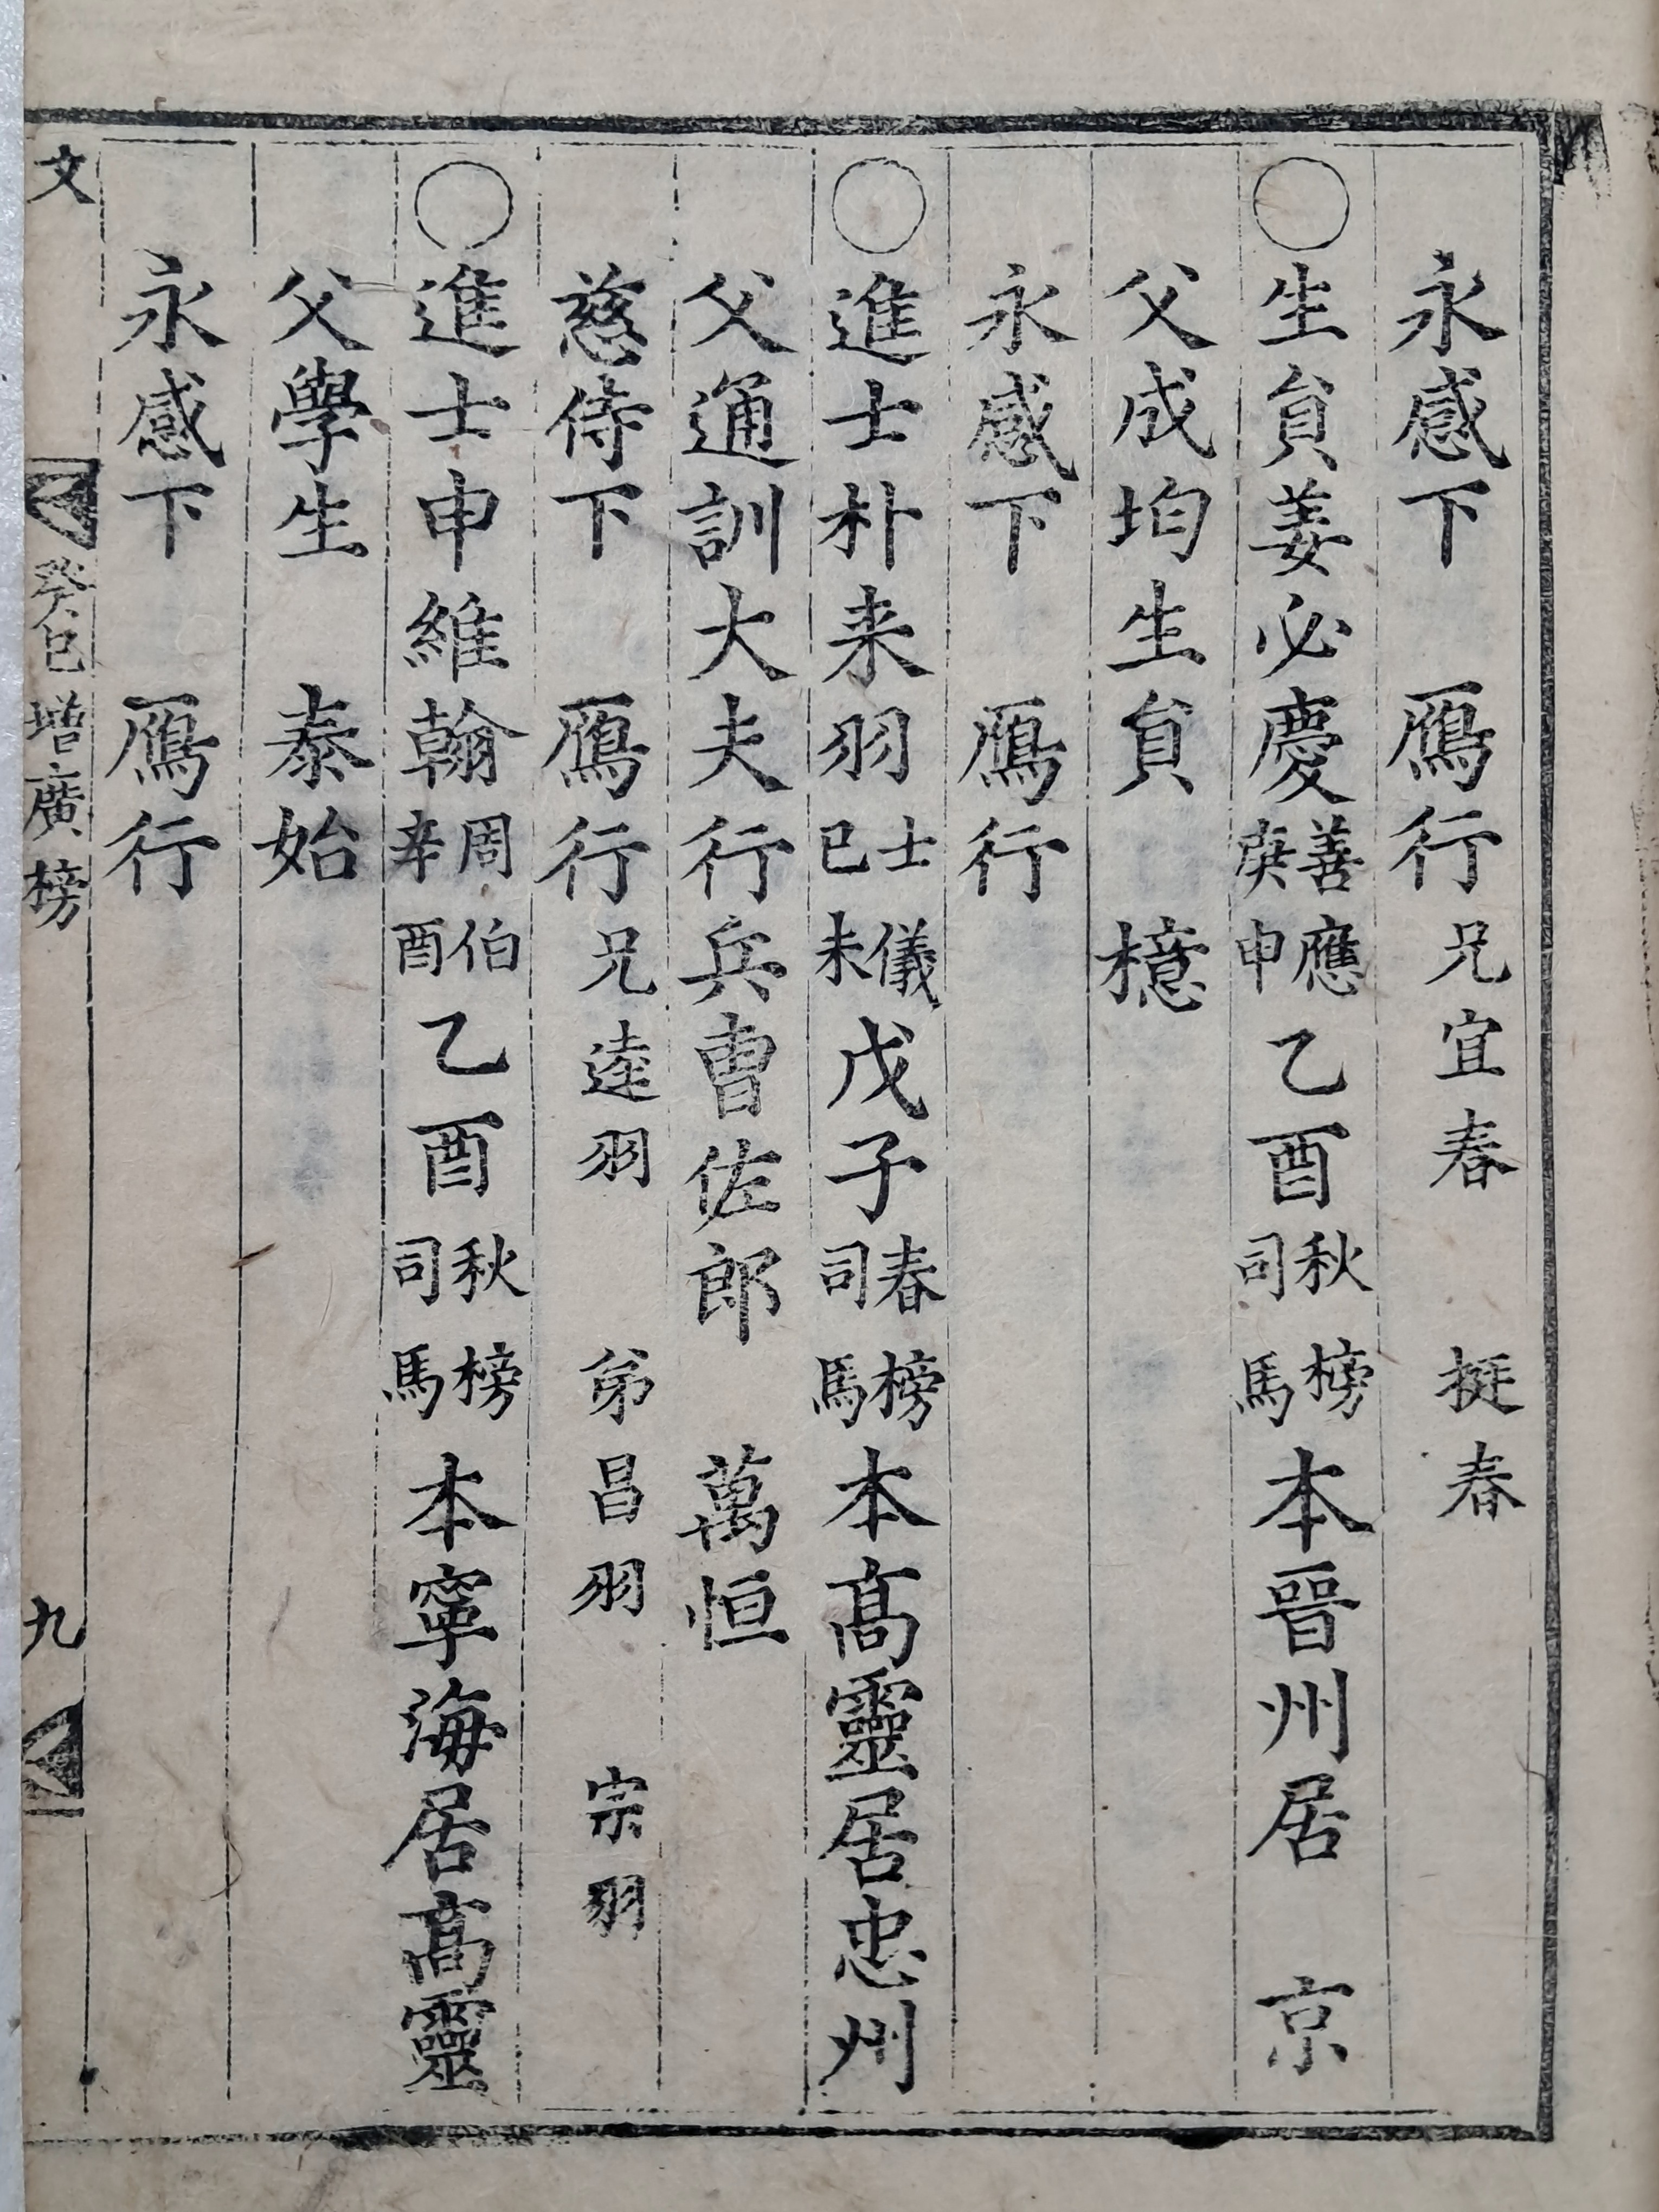 永感下　鴈行兄宜春　挺春
○生員姜必慶善應庚申乙酉秋榜司馬本晉州居　京
父成均生員　檍
永感下　鴈行
○進士朴来羽士儀己未戊子春榜司馬本高靈居忠州
父通訓大夫行兵曺佐郎　萬恒
慈侍下　鴈行兄逵羽　弟昌羽　宗羽
○進士申維翰周伯辛酉乙酉秋榜司馬本寧海居高靈
父學生　泰始
永感下　鴈行
文　癸巳增廣榜　九